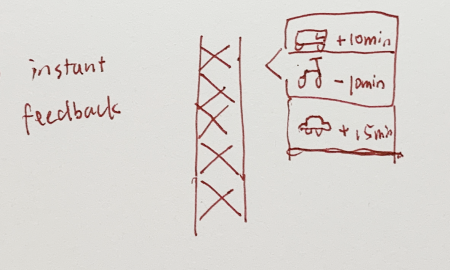 instant
feedback
+10min
-10min
+15min